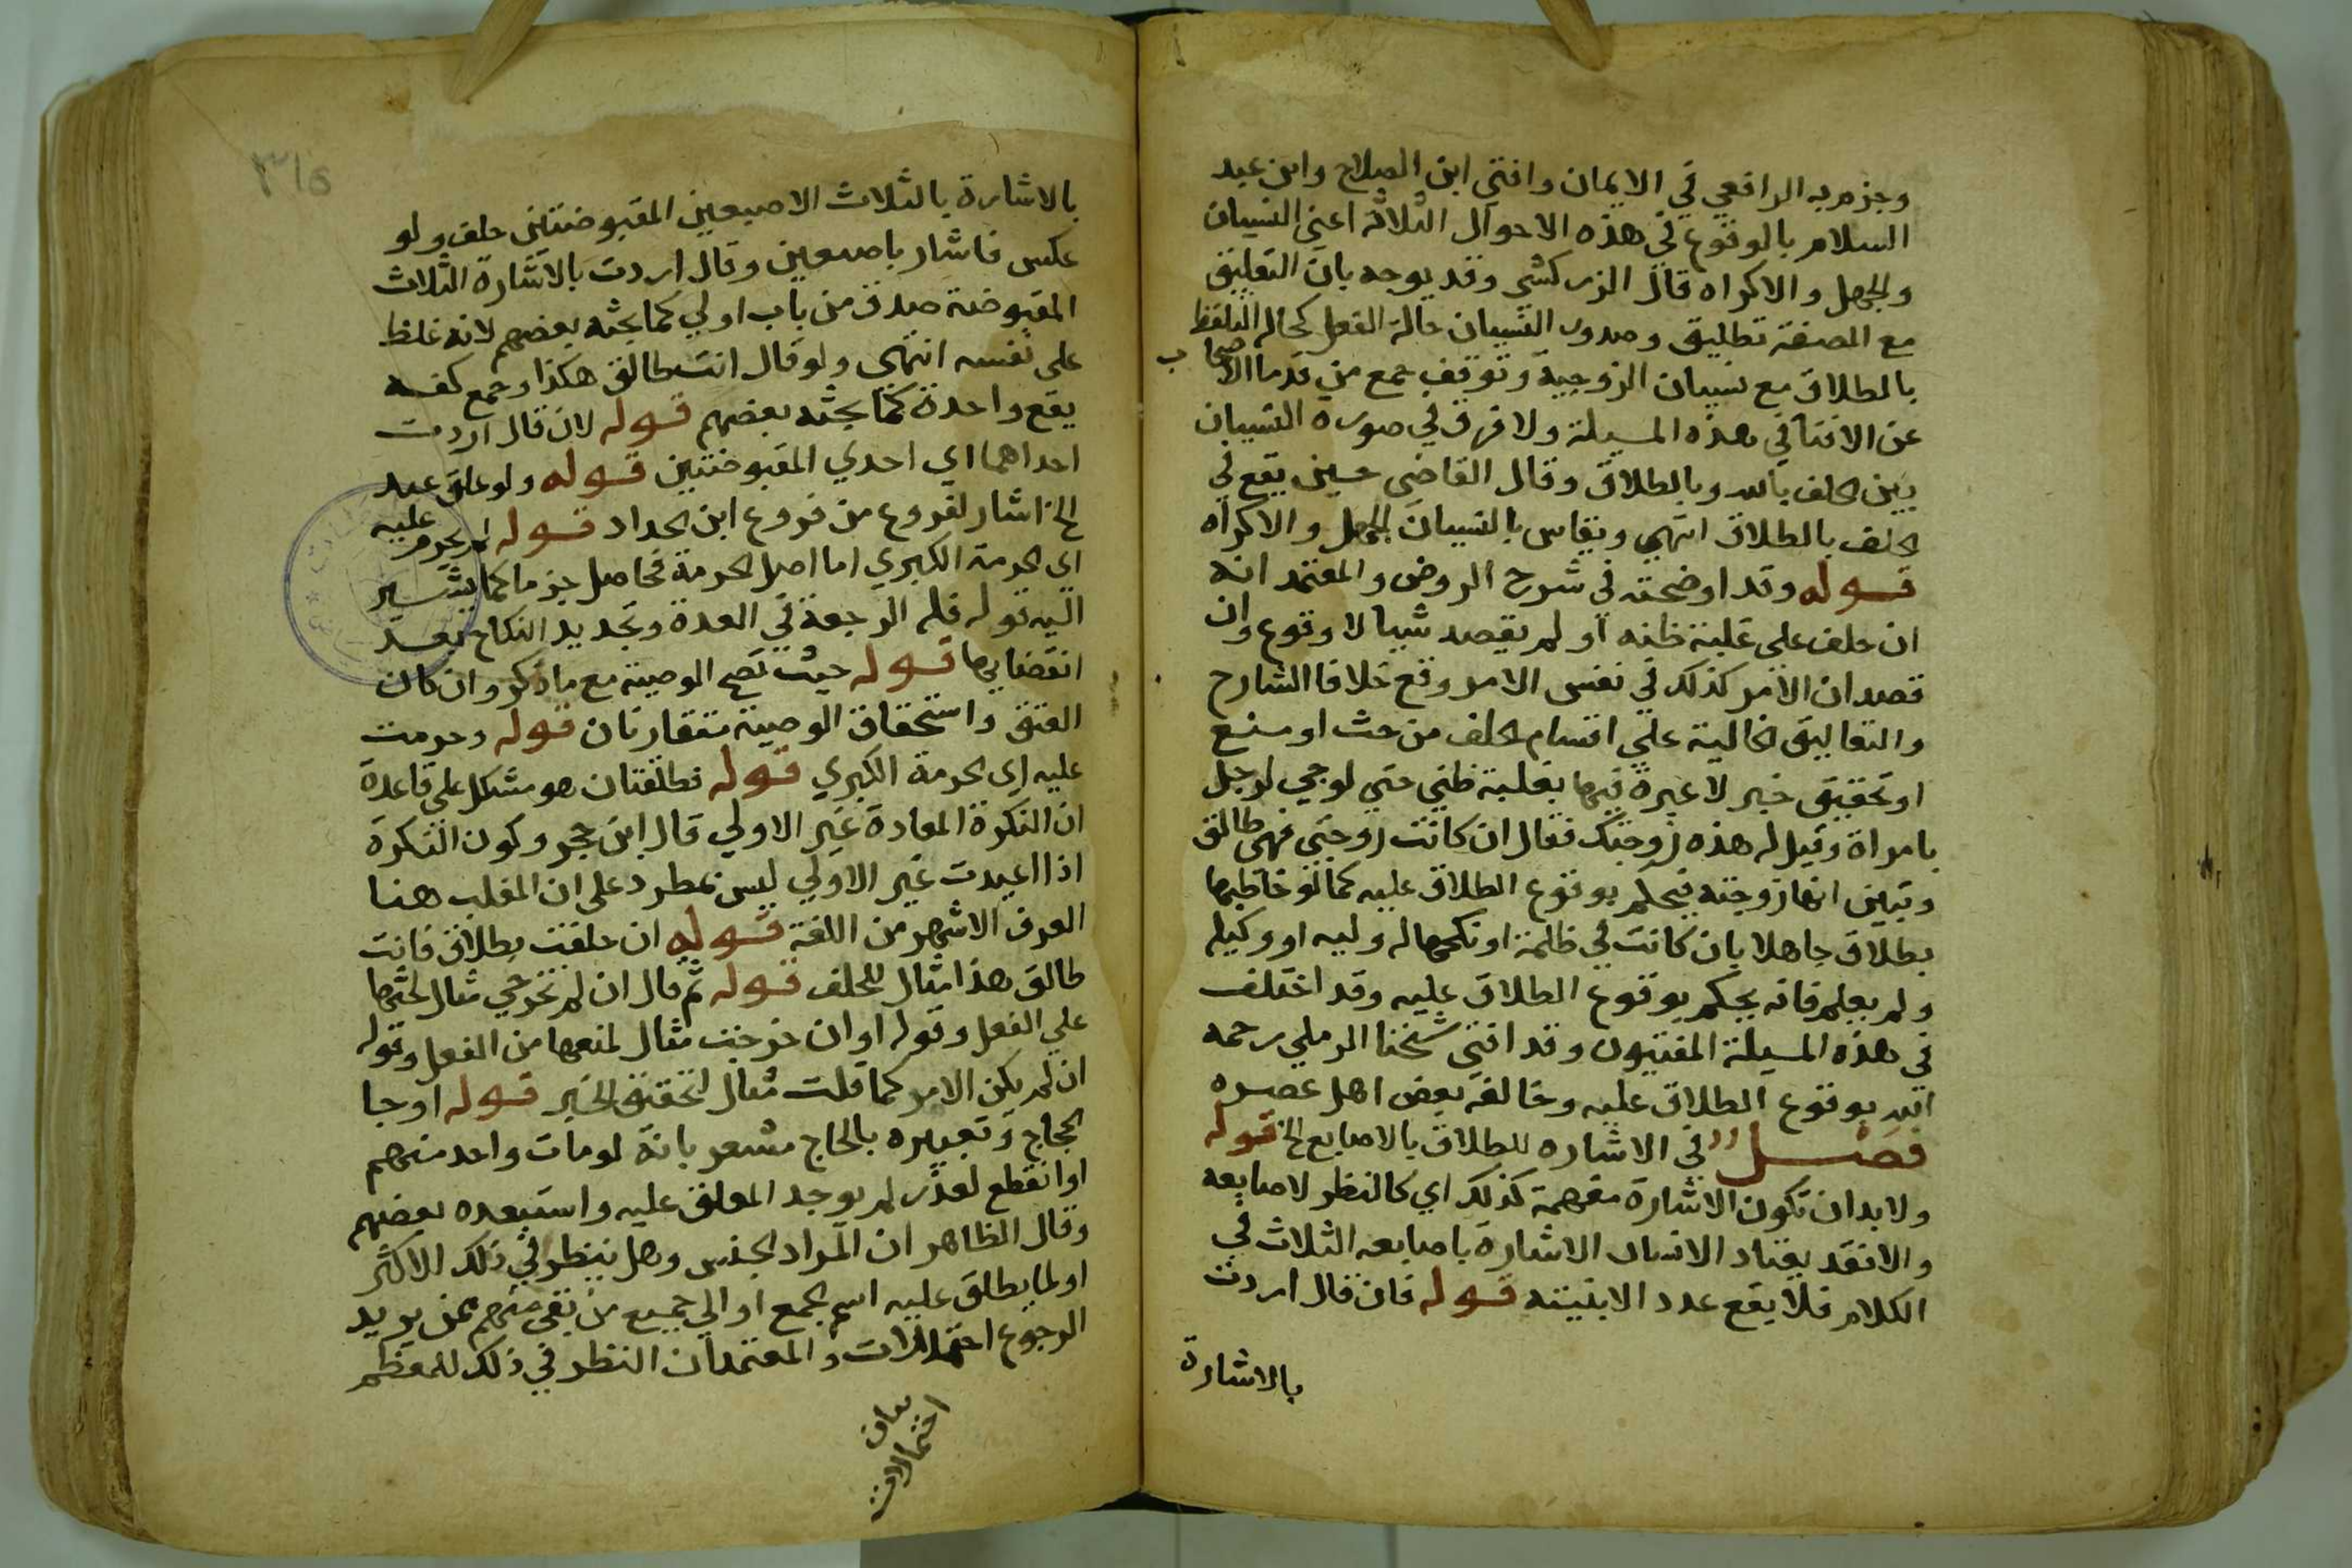 وجزم به الرافعي في الايمان وافتي ابن الصلاح وابن عبد
السلام بالوقوع في هذه الاحوال الثلاثة اعني النسيان
والجهل والاكراه قال الزركشي وقد يوجه بان التعليق
مع الصفة تطليق وصدور النسيان حالة الفعل كحالة التلفظ
بالطلاق مع نسيان الزوجية وتوقف جمع من قدما الاصحاب
عن الافتا في هذه المسيلة ولا فرق في صورة النسيان
بين الحلف بالله وبالطلاق وقال القاضي حسين يقع في
الحلف بالطلاق انتهي ويقاس بالنسيان الجهل والاكراه
قوله وقد اوضحته في شرح الروض والمعتمد انه
ان حلف على غلبة ظنه او لم يقصد شيا لا وقوع وان
قصد ان الامر كذلك في نفس الامر وقع خلافا الشارح
والتعاليق الخالية علي اقسام الحلف من حث او منع
او تحقيق خبر لا عبرة فيها بغلبة ظني حتي لو جي لرجل
بامراة وقيل له هذه زوجتك فقال ان كانت زوجتي فهي طالق
وتبين انها زوجته فيحكم بوقوع الطلاق عليه كما لو خاطبها
بطلاق جاهلا بان كانت في ظلمة او نكحها له وليه او وكيله
ولم يعلم فانه يحكم بوقوع الطلاق عليه وقد اختلف
في هذه المسيلة المفتيون وقد افتي شيخنا الرملي رحمه
الله بوقوع الطلاق عليه وخالفه بعض اهل عصره
فصل في الاشاره للطلاق بالاصابع الخ قوله
ولا بد ان تكون الاشارة مفهمة كذلك اي كالنظر لاصابعه
والا فقد يعتاد الانسان الاشارة باصابعه الثلاث في
الكلام فلا يقع عدد الا بنيته قوله فان قال اردت
بالاشارة
٣١٥
بالاشارة بالثلاث الاصبعين المقبوضتين حلف ولو
عكس فاشار باصبعين وقال اردت بالاشارة الثلاث
المقبوضة صدق من باب اولي كما بحثه بعضهم لانه غلظ
على نفسه انتهى ولو قال انت طالق هكذا وجمع كفه
يقع واحدة كما بحثه بعضهم قوله لان قال اردت
احداهما اي احدي المقبوضتين قوله ولو علق عبد
الخ اشار لفروع من فروع ابن الحداد قوله لم يحرم عليه
اي الحرمة الكبري اما اصل الحرمة فحاصل جزما كما يشير
اليه قوله فله الرجعة في العدة وتجديد النكاح بعد
انقضايها قوله حيث تصح الوصية مع ما ذكر وان كان
العتق واستحقاق الوصية متقارنان قوله وحرمت
عليه اي الحرمة الكبري قوله فطلقتان هو مشكل علي قاعدة
ان النكرة المعادة غير الاولي قال ابن حجر وكون النكرة
اذا اعيدت غير الاولي ليس بمطرد على ان المغلب هنا
العرف الاشهر من اللغة قوله ان حلفت بطلاق فانت
طالق هذا مثال للحلف قوله ثم قال ان لم تخرجي مثال لحثها
علي الفعل وقوله او ان خرجت مثال لمنعها من الفعل وقوله
ان لم يكن الامر كما قلت مثال لتحقيق الخبر قوله او جا
الحجاج وتعبيره بالحاج مشعر بانه لو مات واحد منهم
او انقطع لعذر لم يوجد المعلق عليه واستبعده بعضهم
وقال الظاهر ان المراد الجنس وهل ينظر في ذلك الاكثر
او لما يطلق عليه اسم الجمع او الي جميع من بقي منهم ممن يريد
الرجوع احتمالات والمعتمد ان النظر في ذلك للمعظم
بيان
احتمالات